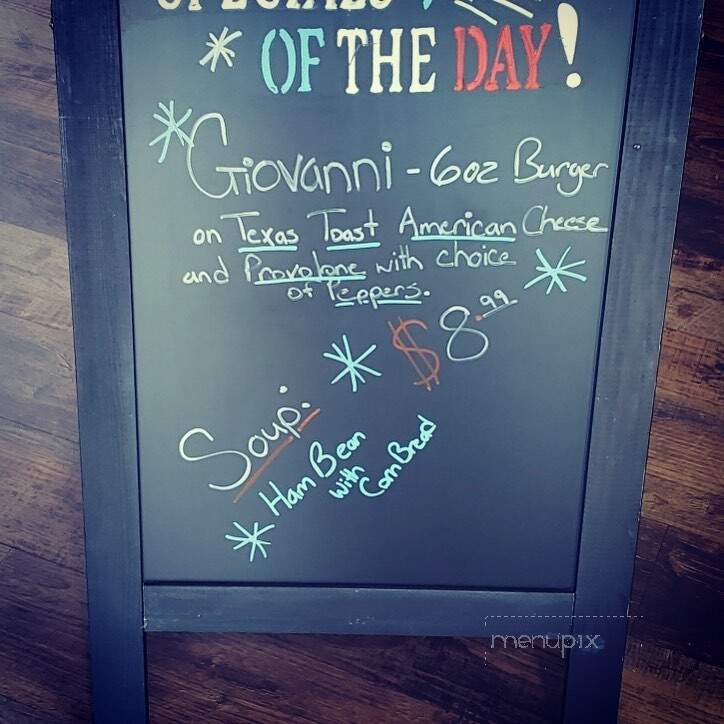 SPECIALS
OF THE DAY!
Giovanni - 6oz Burger
on Texas Toast American Cheese
and Provolone with choice
of Peppers.
$8.99
Soup:
Ham Bean
with
Corn Bread
menupix